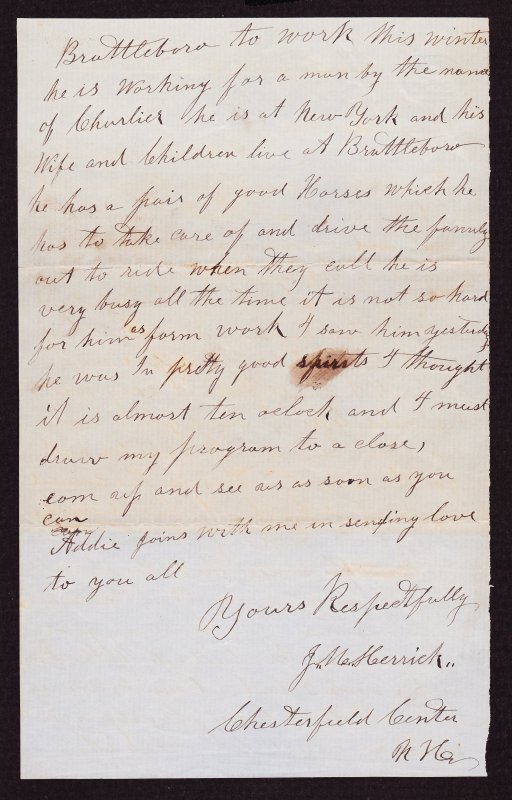 Brattleboro to work this winter
he is working for a man by the name
of Charlier he is at New York and his
Wife and Children live at Brattleboro
he has a pair of good Horses which he
has to take care of and drive the family
out to ride when they call he is
very busy all the time it is not so hard
for him as farm work I saw him yesterday
he was In pretty good spirits I thought
it is almost ten oclock and I must
draw my program to a close,
com up and see us as soon as you
can
Addie joins with me in sending love
to you all
Yours Respectfully
J. M. Herrick..
Chesterfield Center
N H